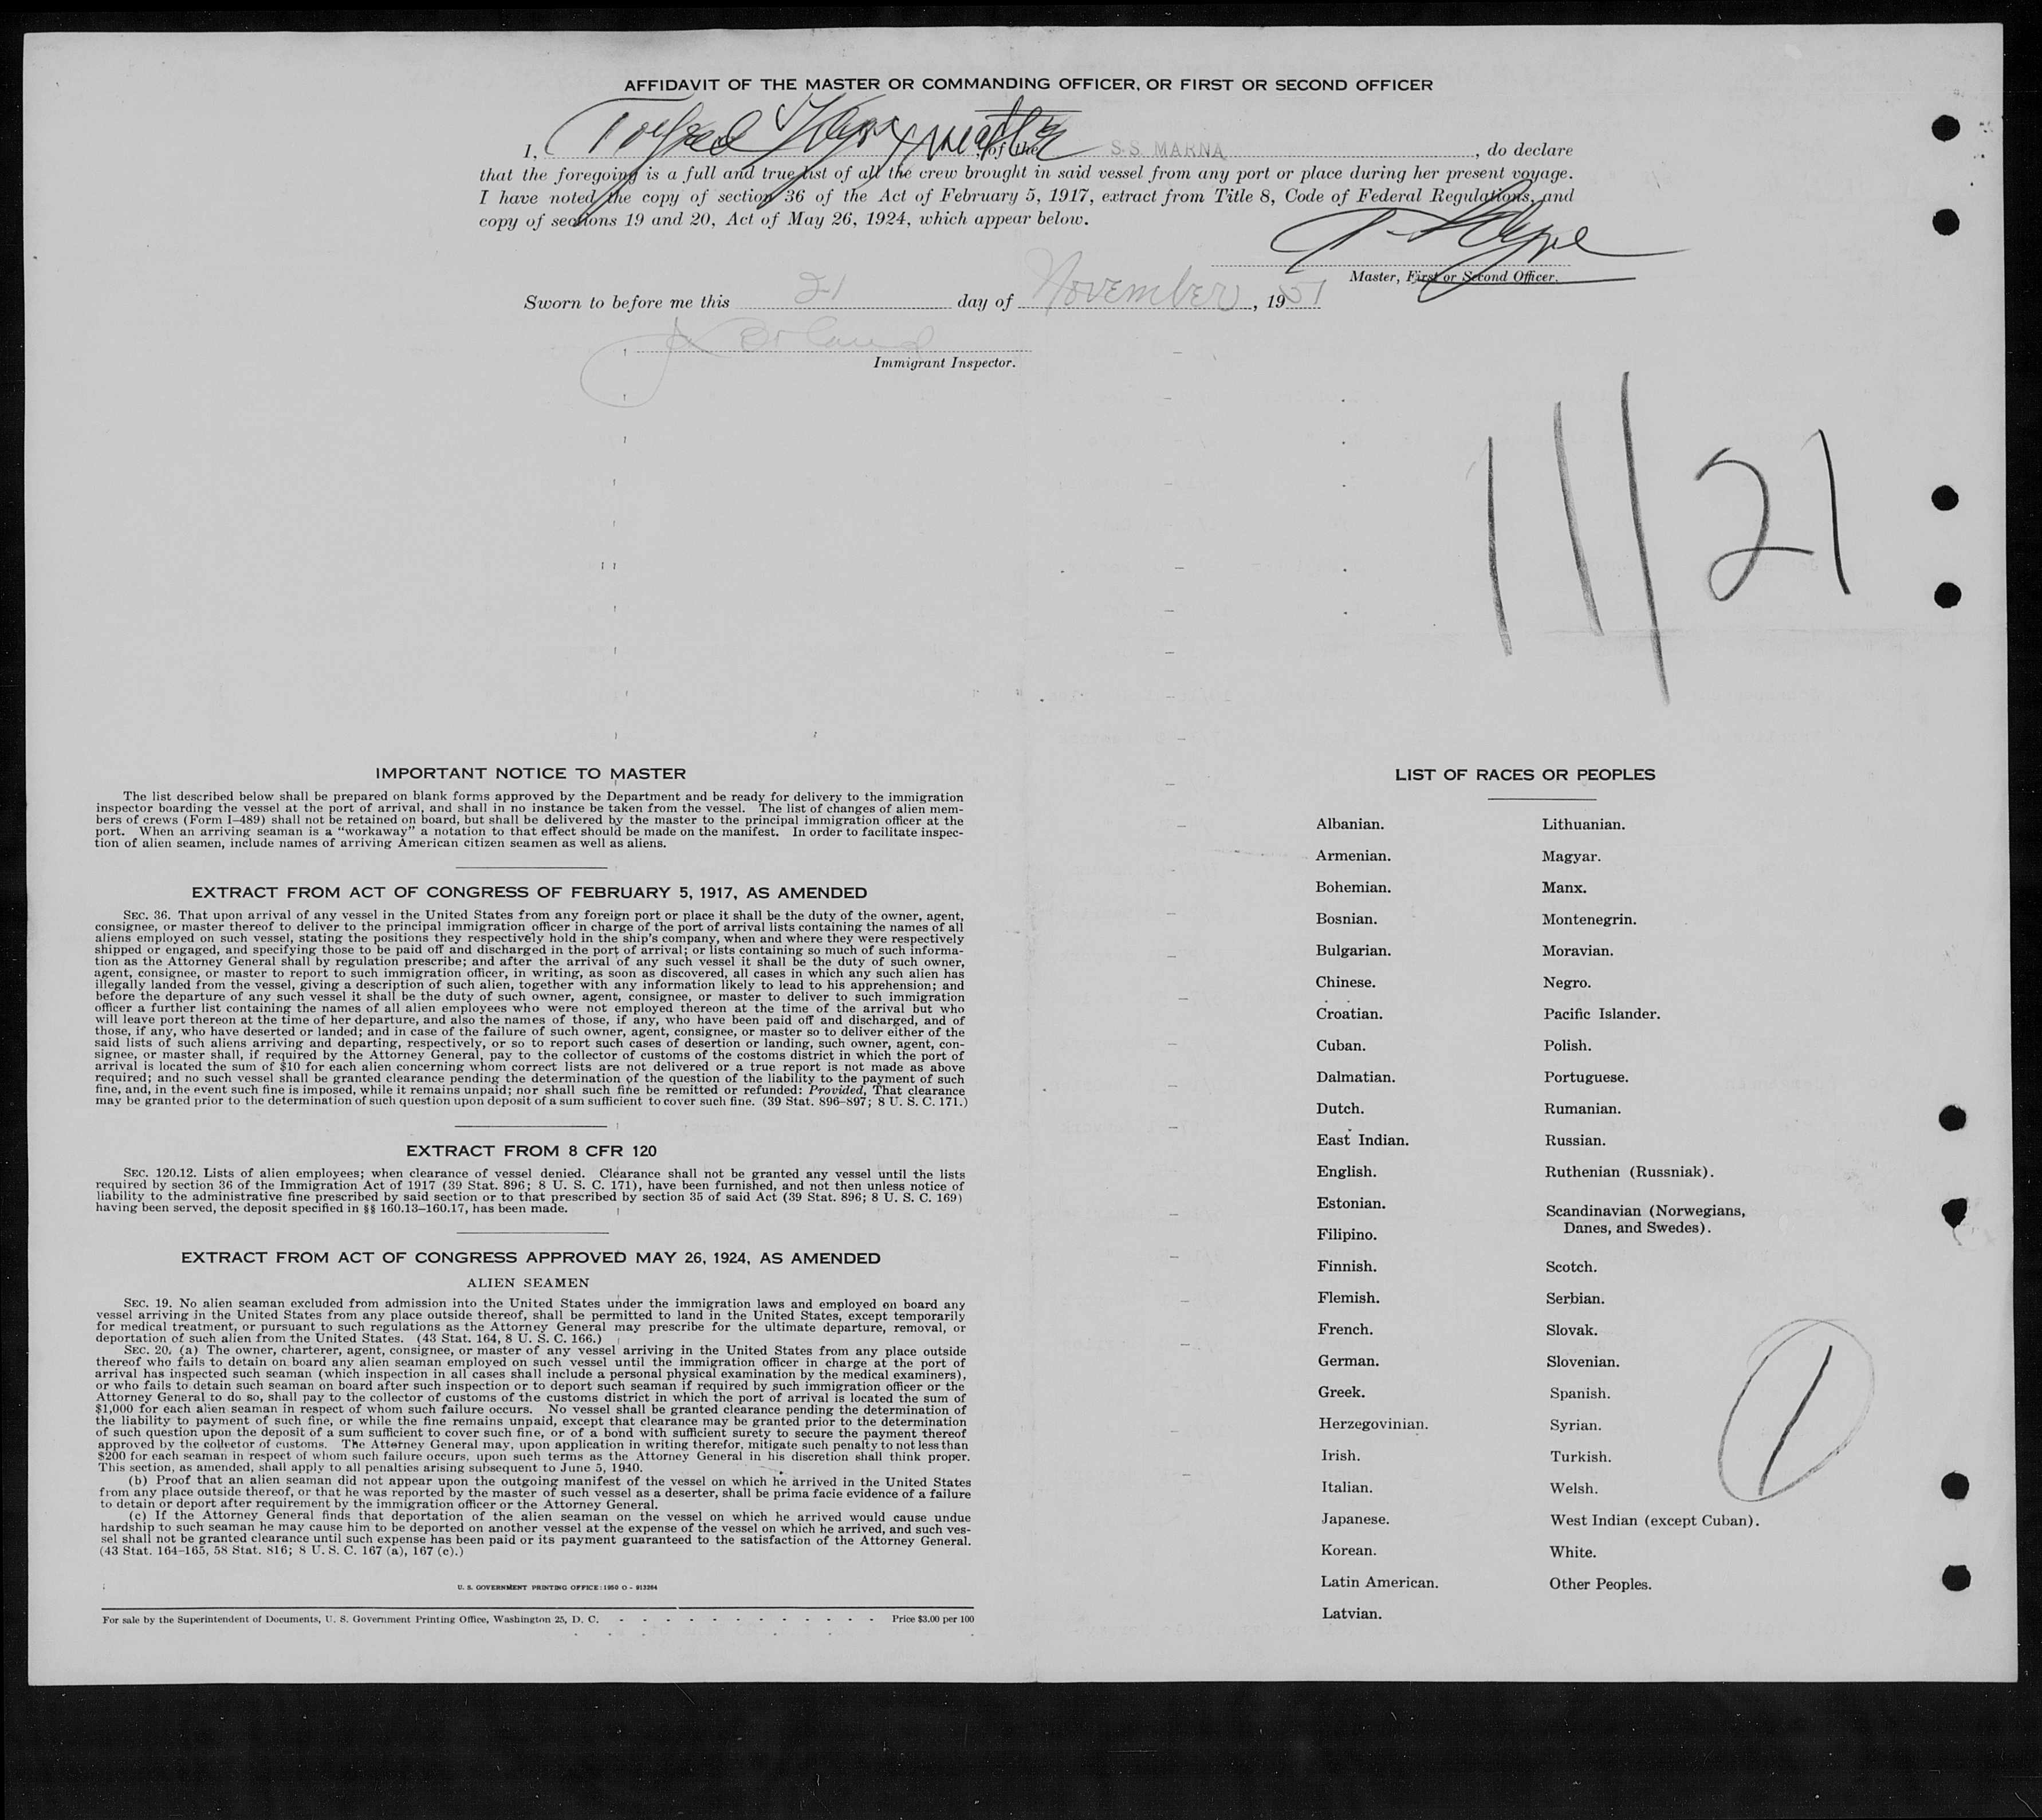 AFFIDAVIT OF THE MASTER OR COMMANDING OFFICER, OR FIRST OR SECOND OFFICER
I, of the S.S MARNA, do declare
that the foregoing is a full and true list of all the crew brought in said vessel from any port or place during her present voyage.
I have noted the copy of section 36 of the Act of February 5, 1917, extract from Title 8, Code of Federal Regulations, and
copy of sections 19 and 20, Act of May 26, 1924, which appear below.
Master, First or Second Officer.
Sworn to before me this 21 day of November, 1951
Immigrant Inspector.
11/21
IMPORTANT NOTICE TO MASTER
The list described below shall be prepared on blank forms approved by the Department and be ready for delivery to the immigration
inspector boarding the vessel at the port of arrival, and shall in no instance be taken from the vessel. The list of changes of alien mem-
bers of crews (Form I–489) shall not be retained on board, but shall be delivered by the master to the principal immigration officer at the
port. When an arriving seaman is a “workaway” a notation to that effect should be made on the manifest. In order to facilitate inspec-
tion of alien seamen, include names of arriving American citizen seamen as well as aliens.
EXTRACT FROM ACT OF CONGRESS OF FEBRUARY 5, 1917, AS AMENDED
SEC. 36. That upon arrival of any vessel in the United States from any foreign port or place it shall be the duty of the owner, agent,
consignee, or master thereof to deliver to the principal immigration officer in charge of the port of arrival lists containing the names of all
aliens employed on such vessel, stating the positions they respectively hold in the ship's company, when and where they were respectively
shipped or engaged, and specifying those to be paid off and discharged in the port of arrival; or lists containing so much of such informa-
tion as the Attorney General shall by regulation prescribe; and after the arrival of any such vessel it shall be the duty of such owner,
agent, consignee, or master to report to such immigration officer, in writing, as soon as discovered, all cases in which any such alien has
illegally landed from the vessel, giving a description of such alien, together with any information likely to lead to his apprehension; and
before the departure of any such vessel it shall be the duty of such owner, agent, consignee, or master to deliver to such immigration
officer a further list containing the names of all alien employees who were not employed thereon at the time of the arrival but who
will leave port thereon at the time of her departure, and also the names of those, if any, who have been paid off and discharged, and of
those, if any, who have deserted or landed; and in case of the failure of such owner, agent, consignee, or master so to deliver either of the
said lists of such aliens arriving and departing, respectively, or so to report such cases of desertion or landing, such owner, agent, con-
signee, or master shall, if required by the Attorney General, pay to the collector of customs of the costoms district in which the port of
arrival is located the sum of $10 for each alien concerning whom correct lists are not delivered or a true report is not made as above
required; and no such vessel shall be granted clearance pending the determination of the question of the liability to the payment of such
fine, and, in the event such fine is imposed, while it remains unpaid; nor shall such fine be remitted or refunded: Provided, That clearance
may be granted prior to the determination of such question upon deposit of a sum sufficient to cover such fine. (39 Stat. 896–897; 8 U. S. C. 171.)
EXTRACT FROM 8 CFR 120
SEC. 120.12. Lists of alien employees; when clearance of vessel denied. Clearance shall not be granted any vessel until the lists
required by section 36 of the Immigration Act of 1917 (39 Stat. 896; 8 U. S. C. 171), have been furnished, and not then unless notice of
liability to the administrative fine prescribed by said section or to that prescribed by section 35 of said Act (39 Stat. 896; 8 U. S. C. 169)
having been served, the deposit specified in §§ 160.13–160.17, has been made.
EXTRACT FROM ACT OF CONGRESS APPROVED MAY 26, 1924, AS AMENDED
ALIEN SEAMEN
SEC. 19. No alien seaman excluded from admission into the United States under the immigration laws and employed on board any
vessel arriving in the United States from any place outside thereof, shall be permitted to land in the United States, except temporarily
for medical treatment, or pursuant to such regulations as the Attorney General may prescribe for the ultimate departure, removal, or
deportation of such alien from the United States. (43 Stat. 164, 8 U. S. C. 166.)
SEC. 20. (a) The owner, charterer, agent, consignee, or master of any vessel arriving in the United States from any place outside
thereof who fails to detain on board any alien seaman employed on such vessel until the immigration officer in charge at the port of
arrival has inspected such seaman (which inspection in all cases shall include a personal physical examination by the medical examiners),
or who fails to detain such seaman on board after such inspection or to deport such seaman if required by such immigration officer or the
Attorney General to do so, shall pay to the collector of customs of the customs district in which the port of arrival is located the sum of
$1,000 for each alien seaman in respect of whom such failure occurs. No vessel shall be granted clearance pending the determination of
the liability to payment of such fine, or while the fine remains unpaid, except that clearance may be granted prior to the determination
of such question upon the deposit of a sum sufficient to cover such fine, or of a bond with sufficient surety to secure the payment thereof
approved by the collector of customs. The Attorney General may, upon application in writing therefor, mitigate such penalty to not less than
$200 for each seaman in respect of whom such failure occurs, upon such terms as the Attorney General in his discretion shall think proper.
This section, as amended, shall apply to all penalties arising subsequent to June 5, 1940.
(b) Proof that an alien seaman did not appear upon the outgoing manifest of the vessel on which he arrived in the United States
from any place outside thereof, or that he was reported by the master of such vessel as a deserter, shall be prima facie evidence of a failure
to detain or deport after requirement by the immigration officer or the Attorney General.
(c) If the Attorney General finds that deportation of the alien seaman on the vessel on which he arrived would cause undue
hardship to such seaman he may cause him to be deported on another vessel at the expense of the vessel on which he arrived, and such ves-
sel shall not be granted clearance until such expense has been paid or its payment guaranteed to the satisfaction of the Attorney General.
(43 Stat. 164–165, 58 Stat. 816; 8 U. S. C. 167 (a), 167 (c).)
U. S. GOVERNMENT PRINTING OFFICE: 1950 O - 913264
For sale by the Superintendent of Documents, U. S. Government Printing Office, Washington 25, D. C. - - - - - - - - - - - - Price $3.00 per 100
LIST OF RACES OR PEOPLES
Albanian.
Armenian.
Bohemian.
Bosnian.
Bulgarian.
Chinese.
Croatian.
Cuban.
Dalmatian.
Dutch.
East Indian.
English.
Estonian.
Filipino.
Finnish.
Flemish.
French.
German.
Greek.
Herzegovinian.
Irish.
Italian.
Japanese.
Korean.
Latin American.
Latvian.
Lithuanian.
Magyar.
Manx.
Montenegrin.
Moravian.
Negro.
Pacific Islander.
Polish.
Portuguese.
Rumanian.
Russian.
Ruthenian (Russniak).
Scandinavian (Norwegians,
Danes, and Swedes).
Scotch.
Serbian.
Slovak.
Slovenian.
Spanish.
Syrian.
Turkish.
Welsh.
West Indian (except Cuban).
White.
Other Peoples.
1